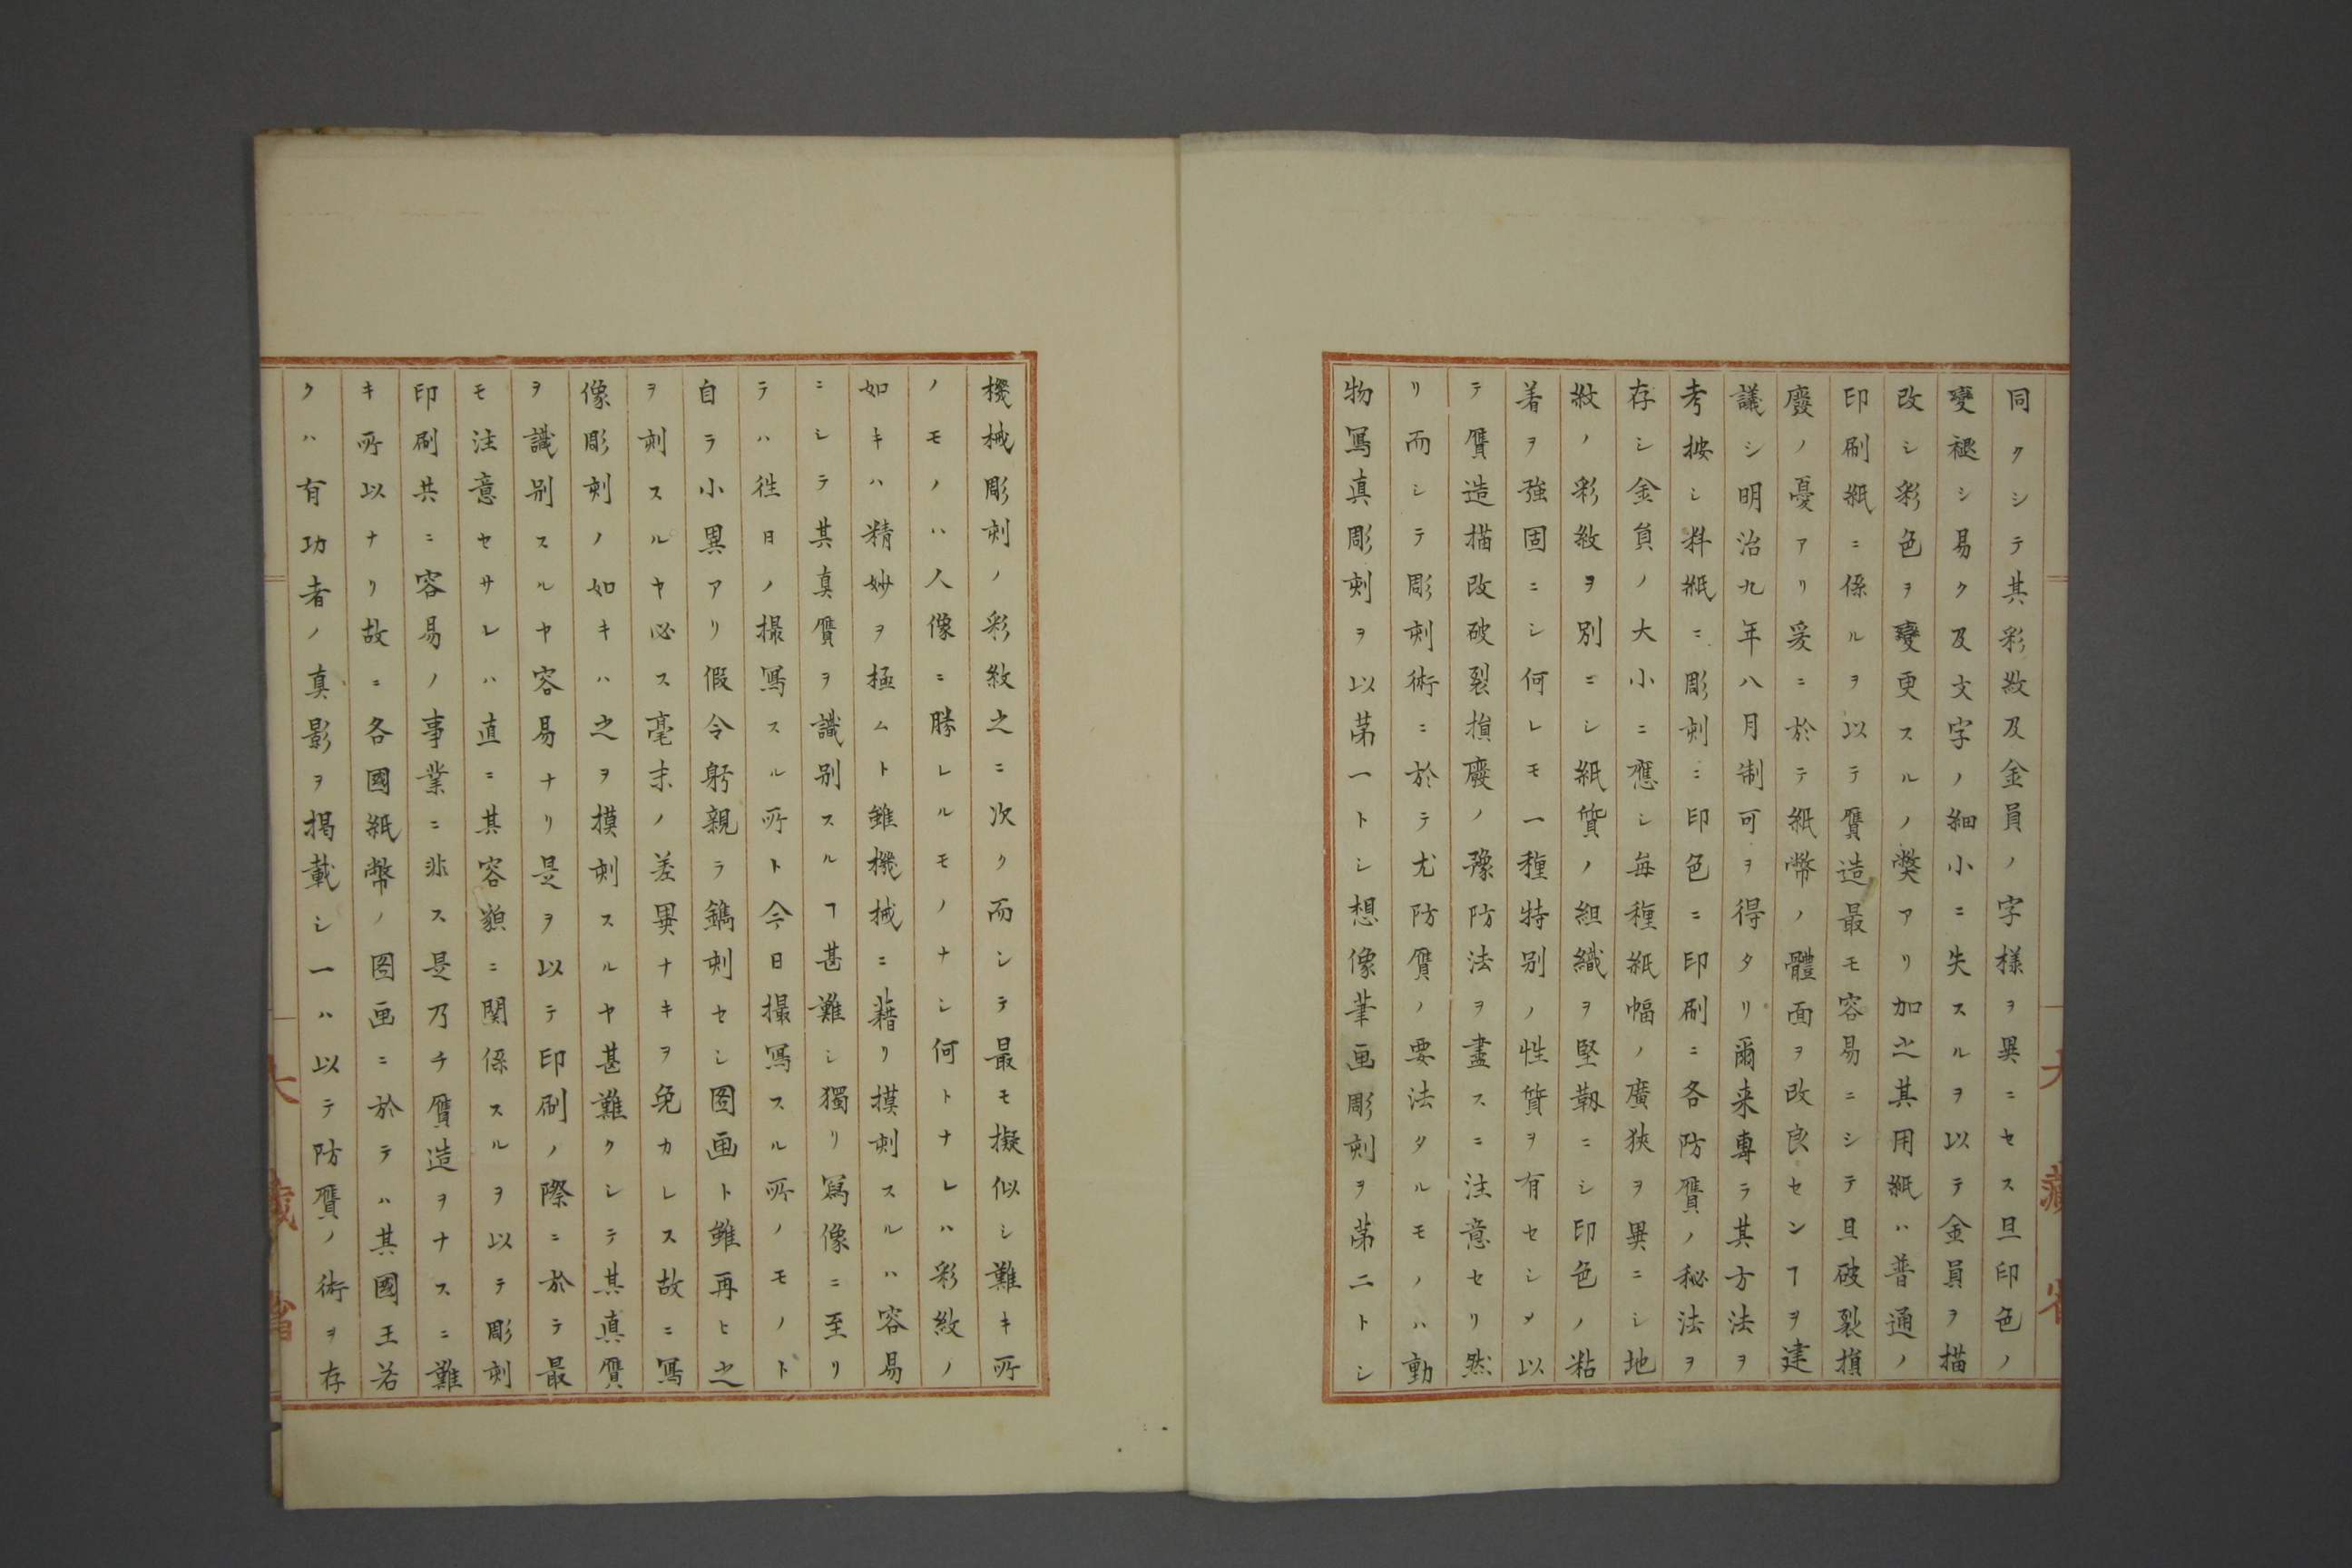 同クシテ其彩紋及金員ノ字樣ヲ異ニセス且印色ノ
變褪シ易ク及文字ノ細小ニ失スルヲ以テ金員ヲ描
改シ彩色ヲ變更スルノ獘アリ加之其用紙ハ普通ノ
印刷紙ニ係ルヲ以テ贋造最モ容易ニシテ且破裂損
廢ノ憂アリ爰ニ於テ紙幣ノ體面ヲ改良センヿヲ建
議シ明治九年八月制可ヲ得タリ爾来專ラ其方法ヲ
考按シ料紙ニ彫刻ニ印色ニ印刷ニ各防贋ノ秘法ヲ
存シ金員ノ大小ニ應シ每種紙幅ノ廣狹ヲ異ニシ地
紋ノ彩紋ヲ別ニシ紙質ノ組織ヲ堅靱ニシ印色ノ粘
着ヲ強固ニシ何レモ一種特別ノ性質ヲ有セシメ以
テ贋造描改破裂損廢ノ豫防法ヲ盡スニ注意セリ然
リ而シテ彫刻術ニ於テ尤防贋ノ要法タルモノハ動
物寫真彫刻ヲ以苐一トシ想像筆画彫刻ヲ苐二トシ
機械彫刻ノ彩紋之ニ次ク而シテ最モ擬似シ難キ所
ノモノハ人像ニ勝レルモノナシ何トナレハ彩紋ノ
如キハ精妙ヲ極ムト雖機械ニ藉リ摸刻スルハ容易
ニシテ其真贋ヲ識別スルヿ甚難シ獨リ寫像ニ至リ
テハ徃日ノ撮寫スル所ト今日撮寫スル所ノモノト
自ラ小異アリ假令躬親ラ鐫刻セシ図画ト雖再ヒ之
ヲ刻スルヤ必ス毫末ノ差異ナキヲ免カレス故ニ寫
像彫刻ノ如キハ之ヲ摸刻スルヤ甚難クシテ其真贋
ヲ識別スルヤ容易ナリ是ヲ以テ印刷ノ際ニ於テ最
モ注意セサレハ直ニ其容貌ニ関係スルヲ以テ彫刻
印刷共ニ容易ノ事業ニ非ス是乃チ贋造ヲナスニ難
キ所以ナリ故ニ各國紙幣ノ図画ニ於テハ其國王若
クハ有功者ノ真影ヲ掲載シ一ハ以テ防贋ノ術ヲ存
大藏省